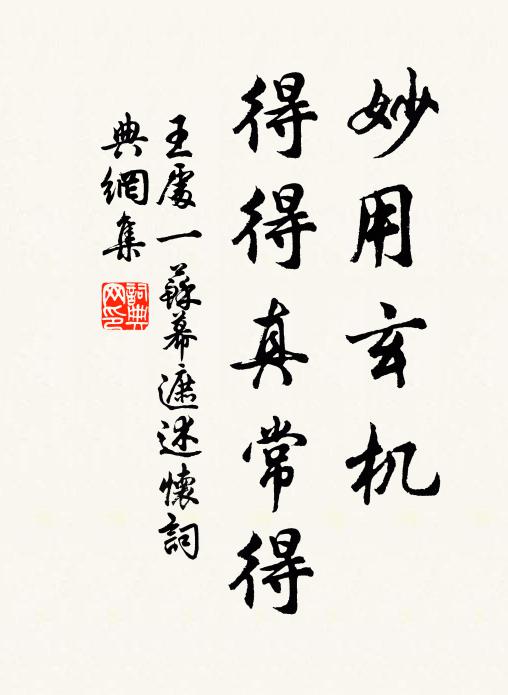 妙用玄机
得得真常得
王處一蘇幕遮述懷詞
典網集
詞典網印